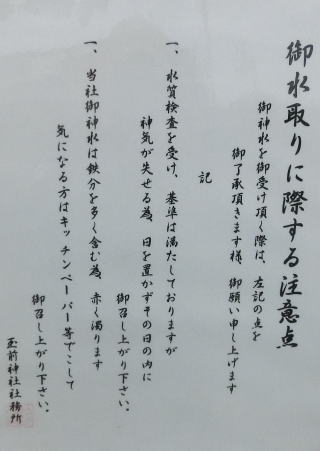 御水取りに際する注意点
御神水を御受け頂く際は、左記の点を
御了承頂きます様、御願い申し上げます
記
一、水質検査を受け、基準は満たしておりますが
神気が失せる為、日を置かずその日の内に
御召し上がり下さい。
一、当社御神水は鉄分を多く含む為、赤く濁ります
気になる方はキッチンペーパー等でこして
御召し上がり下さい。
玉前神社社務所